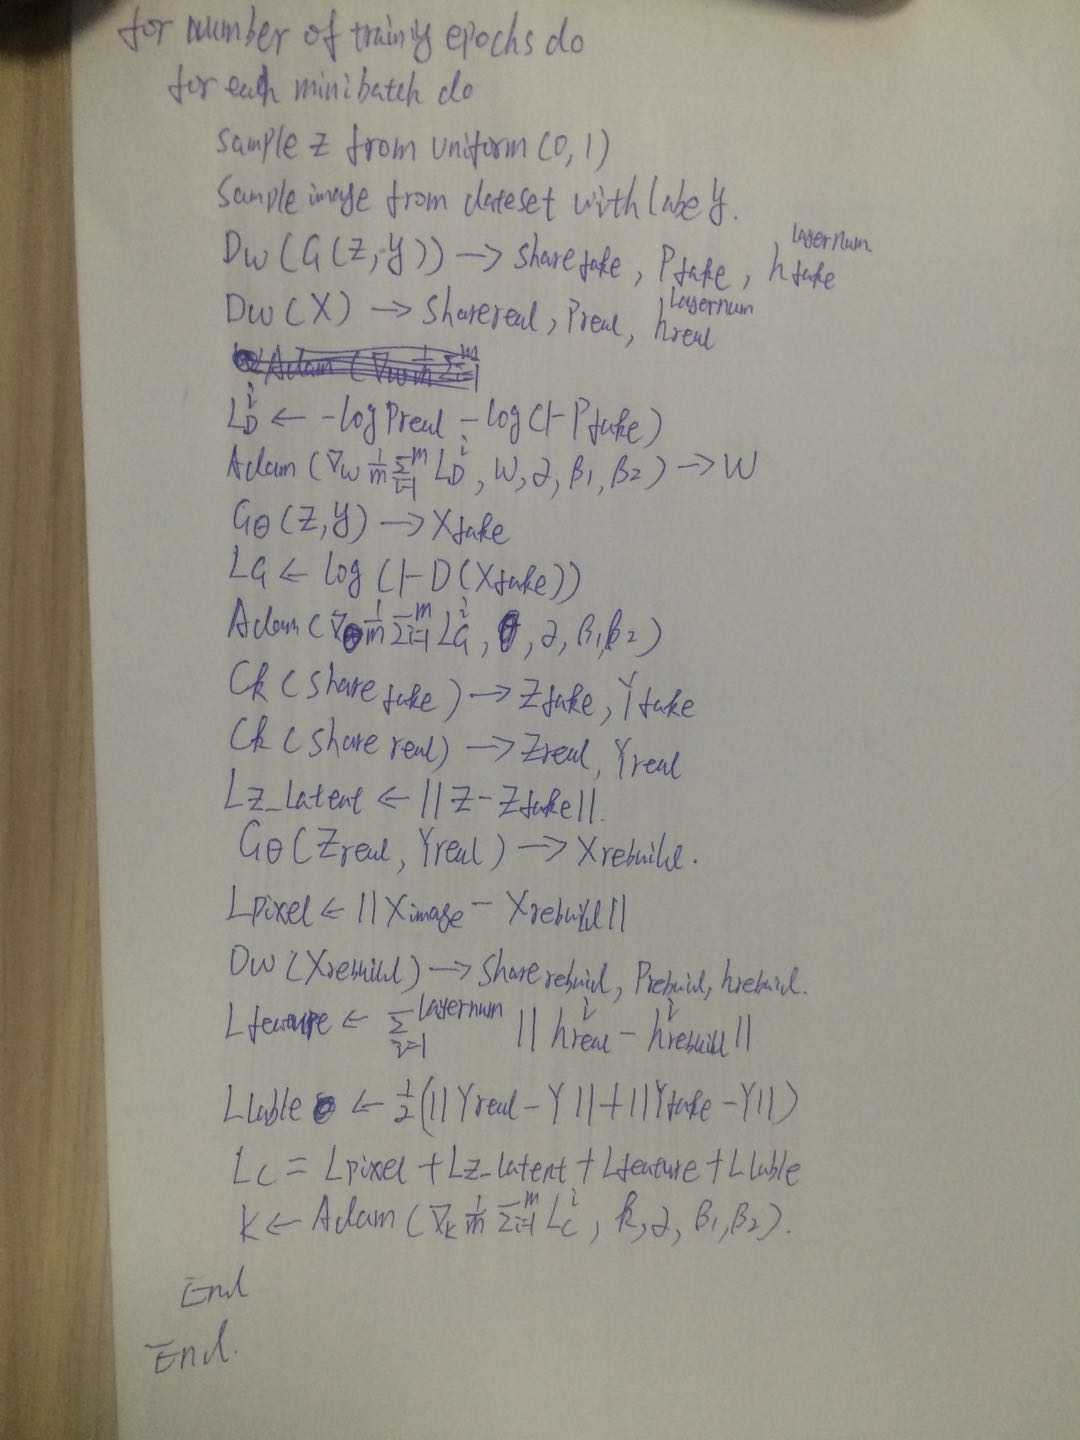 for number of trainig epochs do
for each minibatch do
sample z from uniform (0,1)
Sample image from dateset with labe y.
Dw (G(z,y)) → share fake, P fake, h fake layernum
Dw (X) → Share real, Preal, h real layernum
Adam (∇w 1/m Σ i=1 m
L D i ← -log Preal - log(1-Pfake)
Adam (∇w 1/m Σ i=1 m L D i, W, ∂, β1, β2) → W
Gθ (Z,y) → Xfake
LG ← log (1-D(Xfake))
Adam (∇θ 1/m Σ i=1 m L G i, θ, ∂, β1, β2)
Ck (share fake) → Zfake, Yfake
Ck (share real) → Zreal, Yreal
Lz_latent ← ||Z-Zfake||.
Gθ (Zreal, Yreal) → Xrebuild.
Lpixel ← ||Ximage - Xrebuild||
Dw (Xrebuild) → Share rebuid, Prebuid, hrebuid.
Lfeature ← Σ i=1 layernum || h real i - h rebuild i ||
Llable ← 1/2 (||Yreal-Y||+||Yfake-Y||)
Lc = Lpixel + Lz_latent + Lfeature + Llable
K ← Adam (∇k 1/m Σ i=1 m L C i, k, ∂, β1, β2).
End
End.